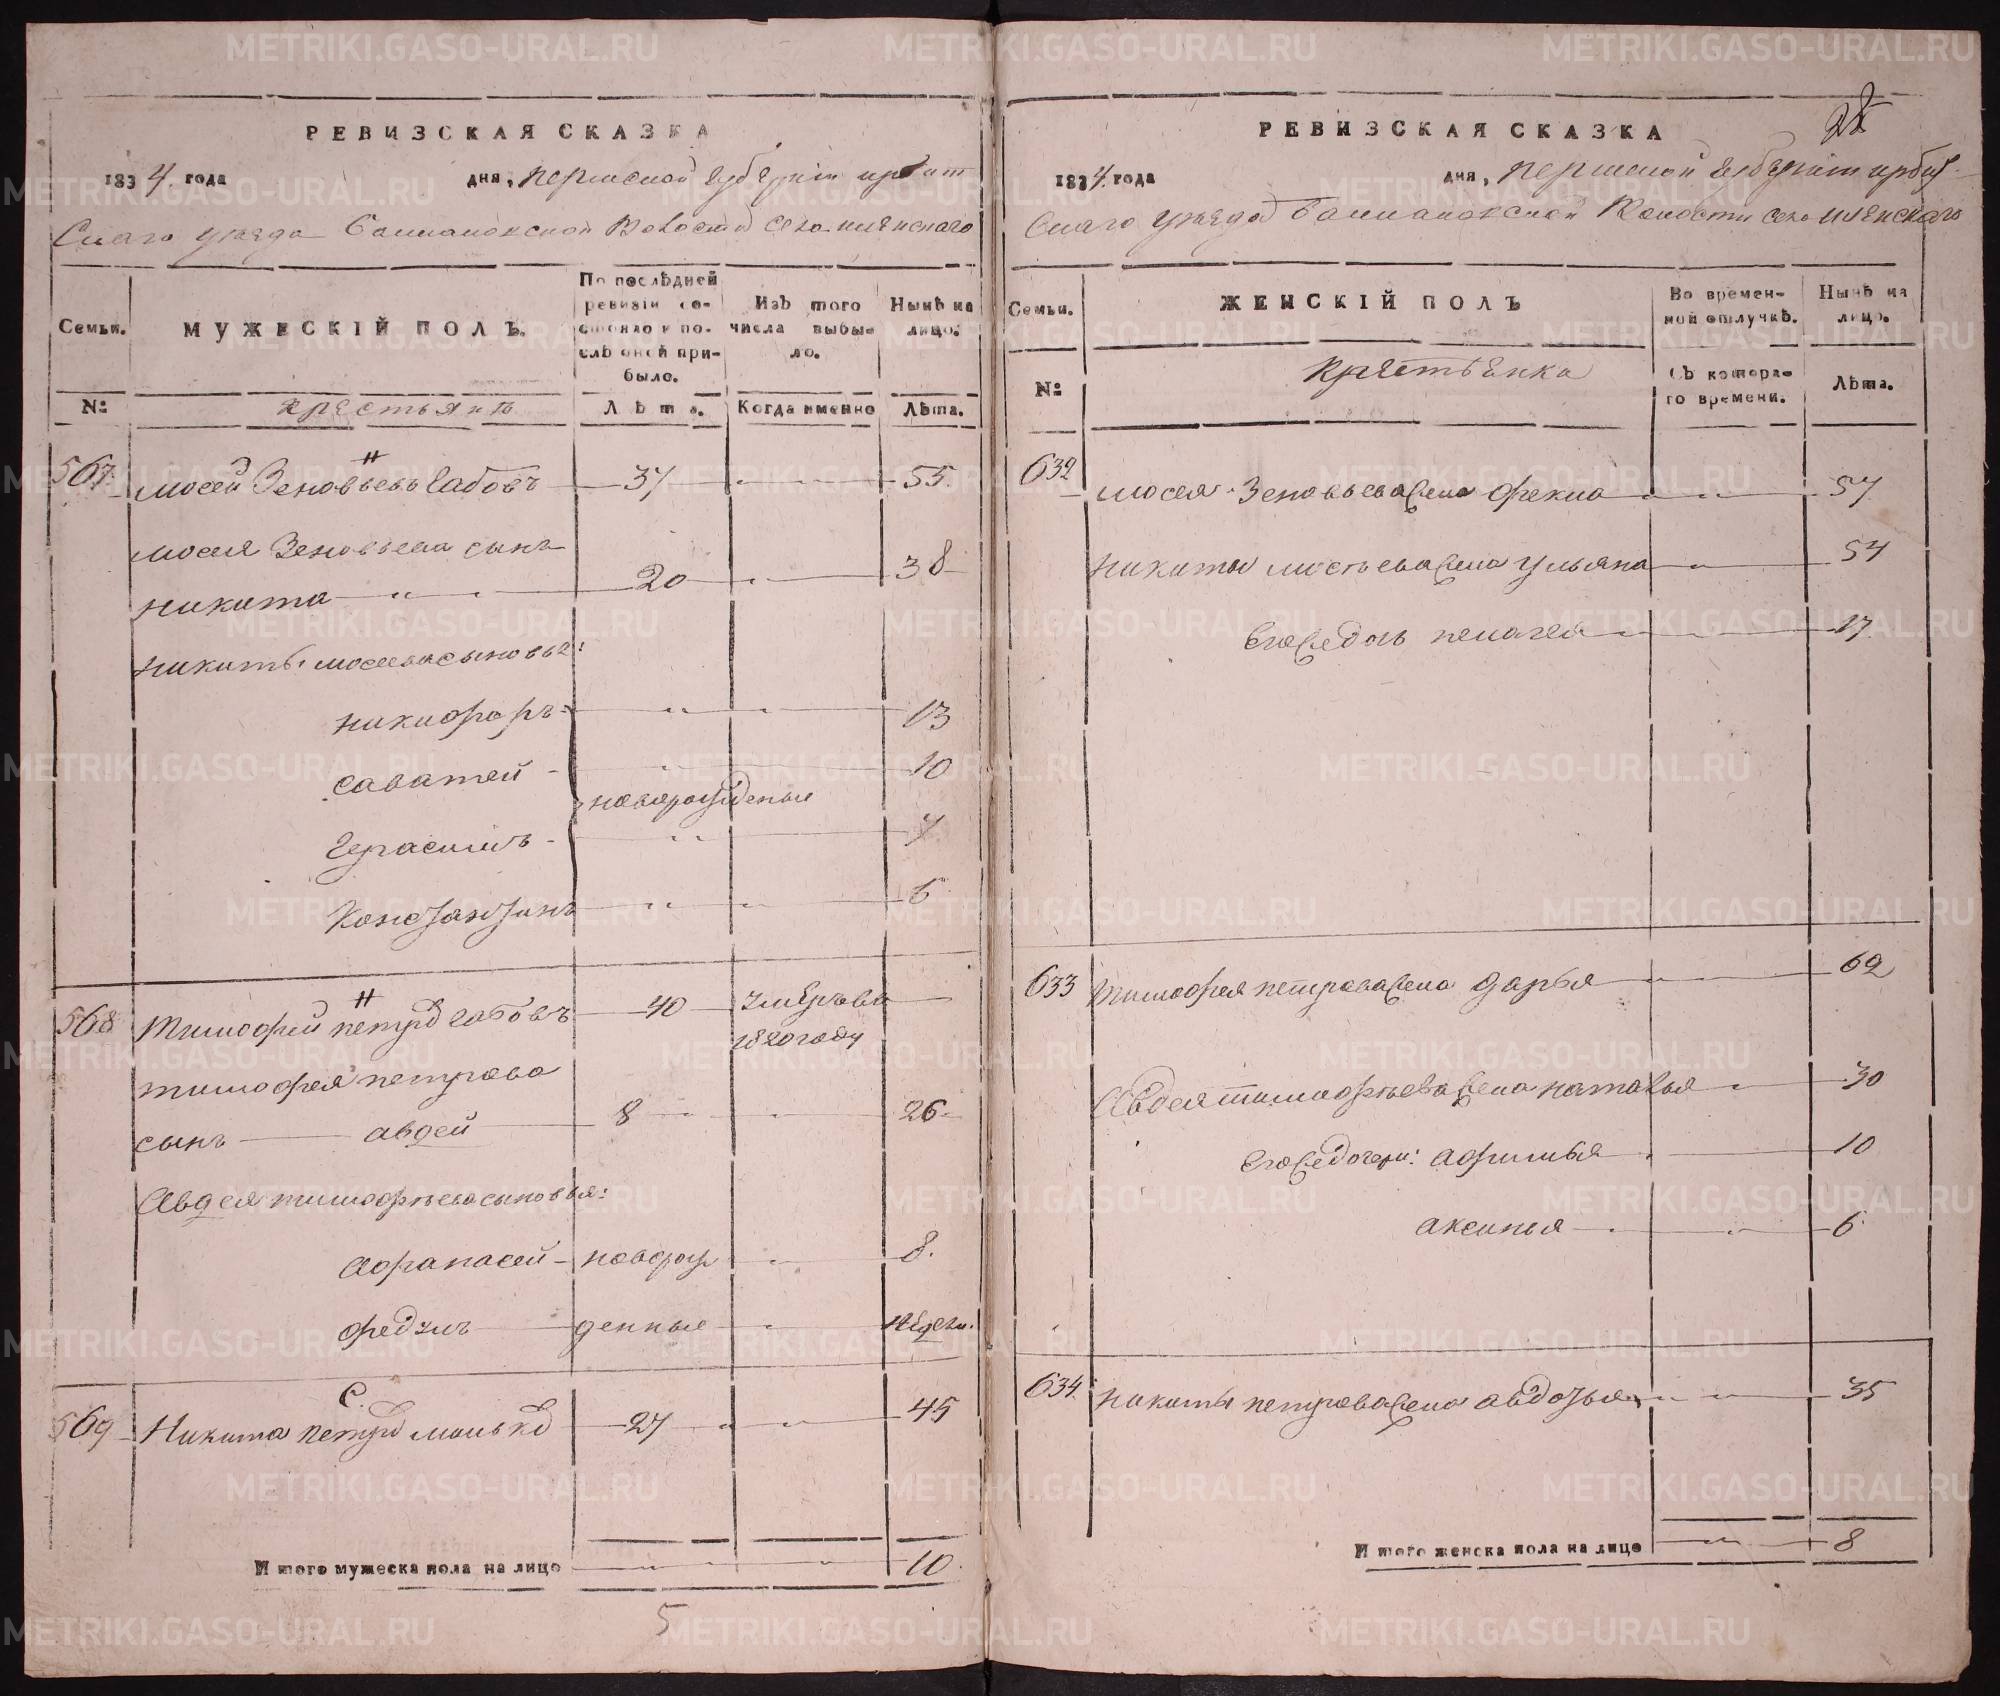 РЕВИЗСКАЯ СКАЗКА
1834 года дня, Пермской губернiи ирбит
скаго уезда Волости села
Семьи.
МУЖЕСКІЙ ПОЛЪ.
По послѣдней ревизіи состояло и послѣ оной прибыло.
Изъ того числа выбыло.
Нынѣ на лицо.
№
крестьянъ
Лѣта.
Когда именно
Лѣта.
567. мосей Зеновьевъ бабовъ 37 55.
мосея Зеновьева сынъ
никита 20 38
никиты мосеева сыновья:
никифоръ 13
саватей 10
новорожденые
Герасимъ 7
Константинъ 6
568 тимофей петровъ 40 умеръ въ
1820 году
тимофея петрова
сынъ авдей 8 26
Авдея тимофѣева сыновья:
афанасей новорож 8.
федулъ денные недель.
569 Никита петровъ 27 45
Итого мужеска пола на лицо 10.
5
РЕВИЗСКАЯ СКАЗКА
28
1834 года дня, Пермской губернiи ирбит
скаго уезда Волости села
Семьи.
ЖЕНСКІЙ ПОЛЪ
Во временной отлучкѣ.
Нынѣ на лицо.
№
крестьянка
Съ котораго времени.
Лѣта.
632 мосея Зеновьева жена фекла 57
никиты мосѣева жена ульяна 54
Ево же дочь пелагея 17
633 тимофея петрова жена дарья 62
Авдея тимофѣева жена наталья 30
Ево же дочери: афимья 10
аксинья 6
634. никиты петрова жена авдотья 35
Итого женска пола на лицо 8
METRIKI.GASO-URAL.RU